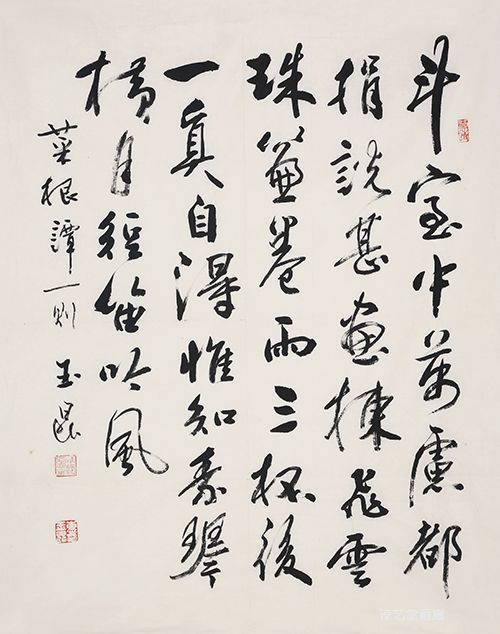 斗室中萬慮都
捐說甚畫棟飛雲
珠簾卷雨三杯後
一真自得惟知素琴
橫月短笛吟風
菜根譚一則 玉